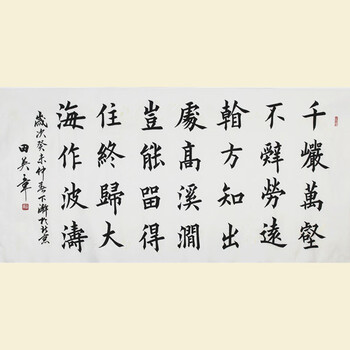 千巖萬壑
不辭勞遠
看方知出
處高溪澗
豈能留得
住終歸大
海作波濤
歲次癸未仲春下澣於北京
田英章